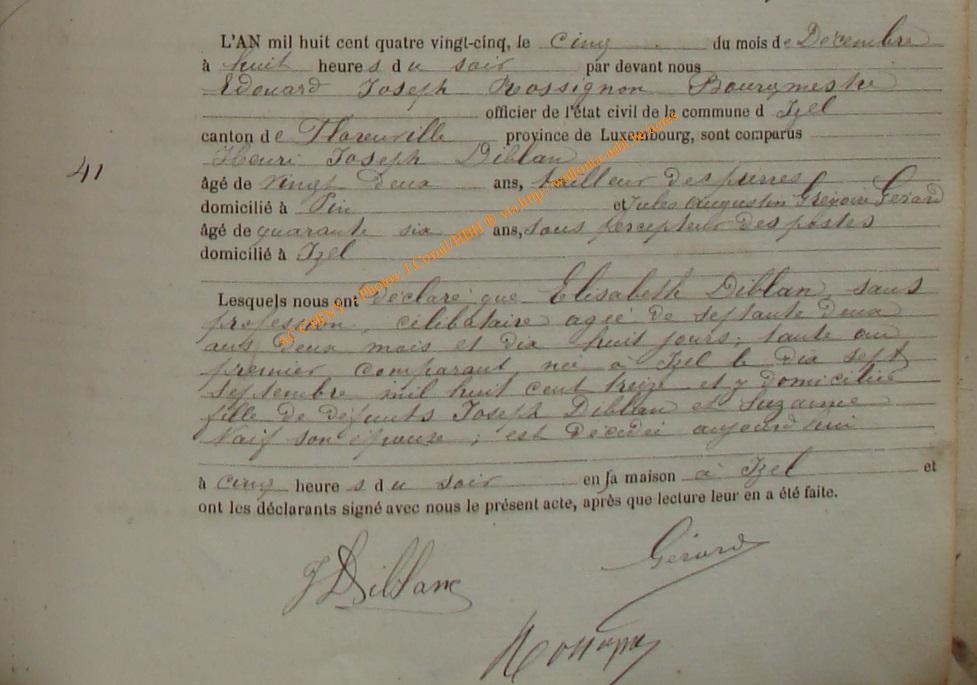 L'AN mil huit cent quatre vingt-cinq, le cinq du mois de Decembre
à huit heures du soir par devant nous
Edouard Joseph Rossignon Bourgmestre
officier de l'état civil de la commune d Izel
canton de Florenville province de Luxembourg, sont comparus
Henri Joseph Diblan
41
âgé de vingt deux ans, tailleur de pierres
domicilié à Pin et Jules Augustin Grégoire Gérard
âgé de quarante six ans, sous percepteur des postes
domicilié à Izel
Lesquels nous ont déclaré que Elisabeth Diblan, sans
profession, célibataire agée de septante deux
ans deux mois et dix huit jours; tante au
premier comparant, née à Izel le dix sept
septembre mil huit cent treize et y domiciliée
fille de défunts Joseph Diblan et Suzanne
Naif son épouse; est décédée aujourd'hui
à cinq heures du soir en sa maison à Izel et
ont les déclarants signé avec nous le présent acte, après que lecture leur en a été faite.
Gérard
J Diblanc